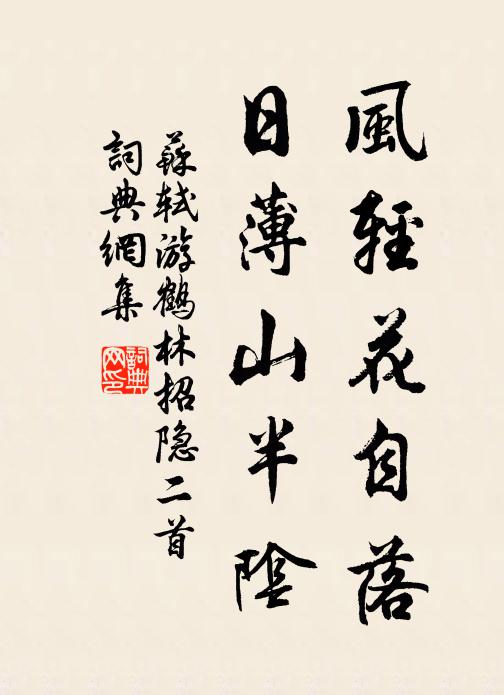 風輕花自落
日薄山半陰
蘇軾游鶴林招隐二首
詞典網集
詞典网印